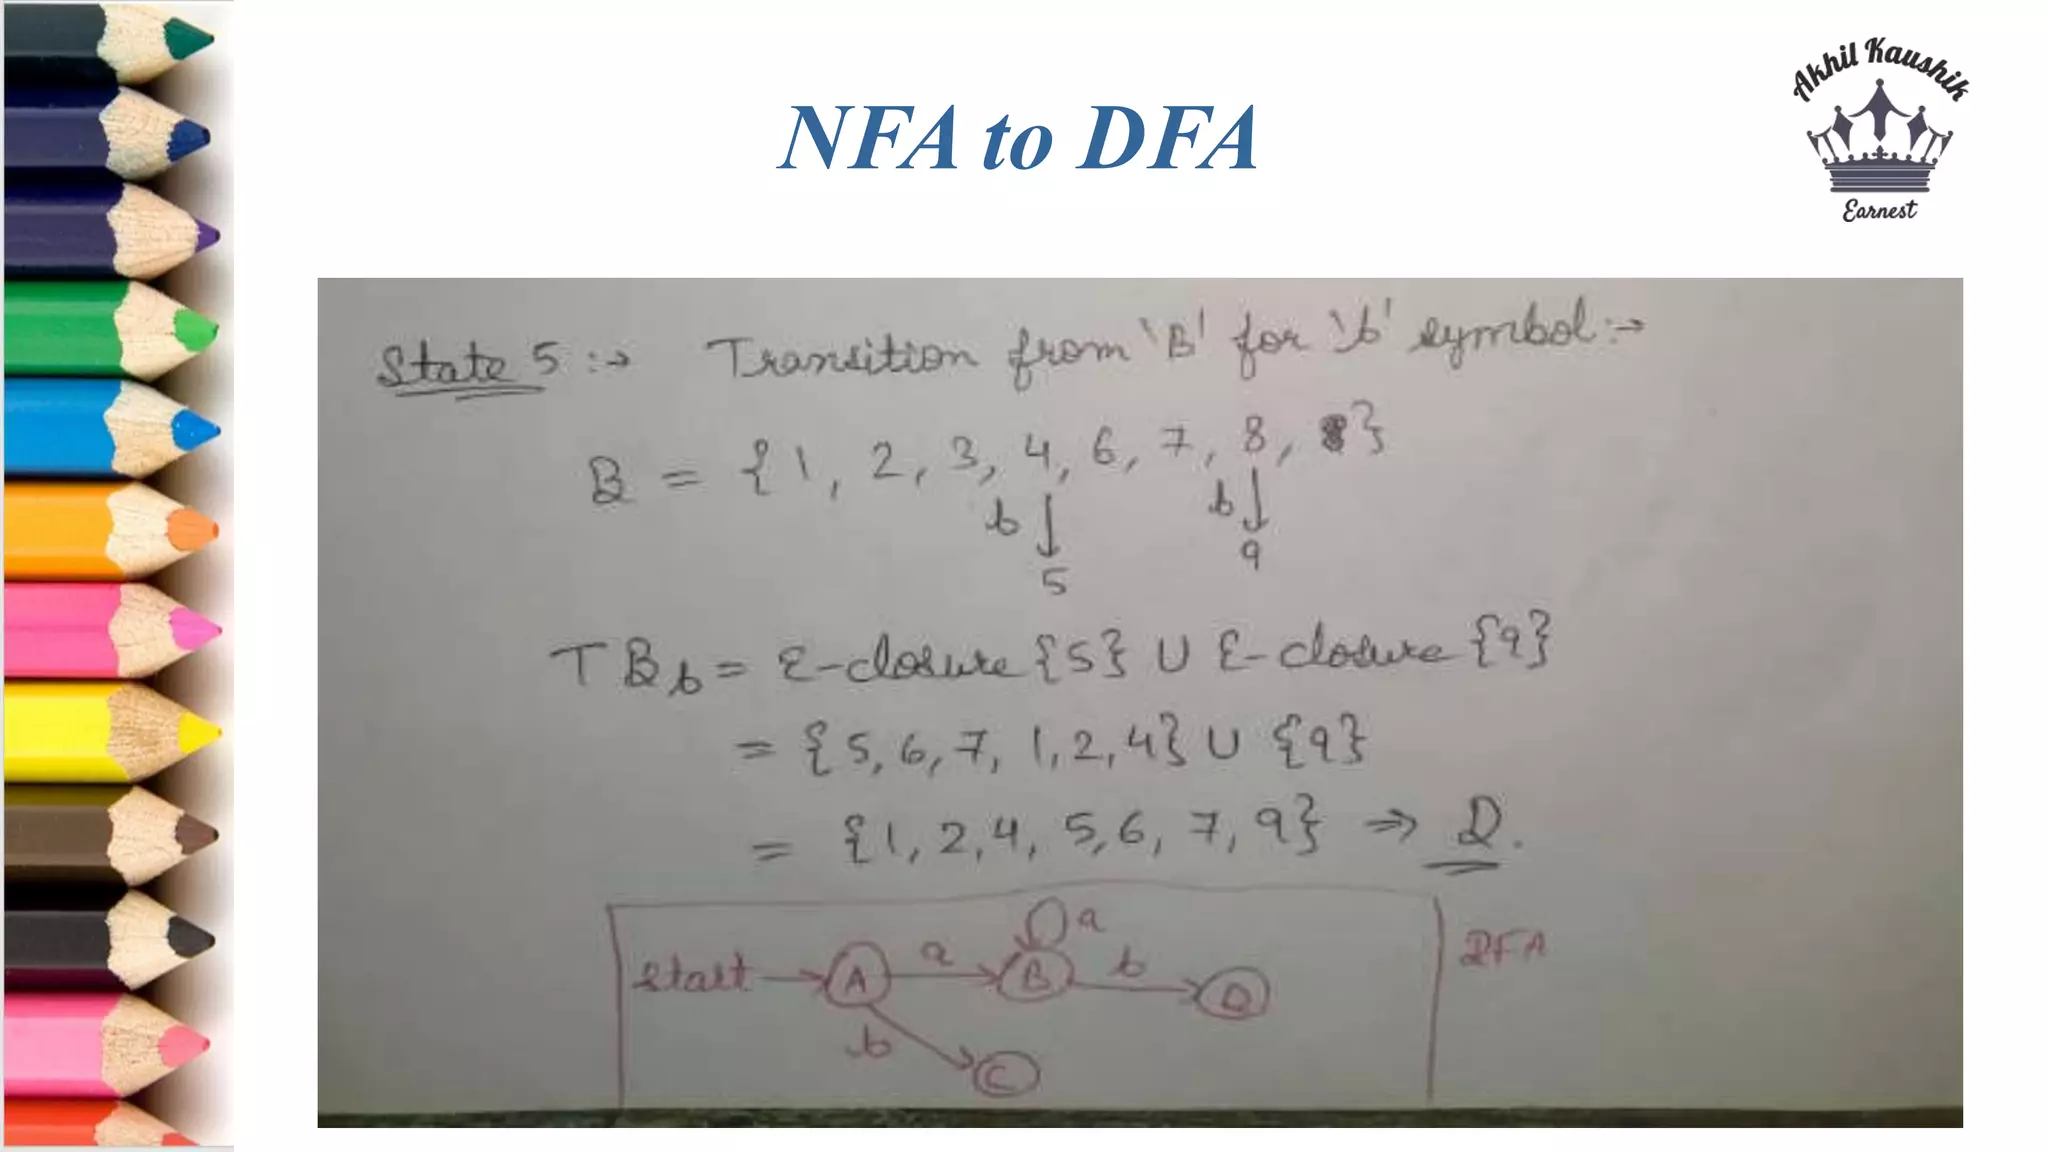 NFA to DFA
Akhil Kaushik
Earnest
State 5 :→ Transition from 'B' for 'b' symbol :→
B = {1, 2, 3, 4, 6, 7, 8, }
b ↓ b ↓
5 9
TBb = ε-closure {5} ∪ ε-closure {9}
= {5, 6, 7, 1, 2, 4} ∪ {9}
= {1, 2, 4, 5, 6, 7, 9} ⇒ D.
a
start → A a B b D DFA
b
C